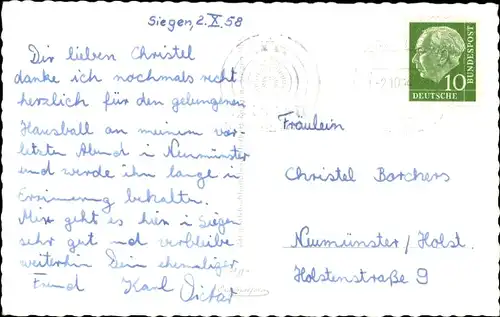 Siegen, 2. X. 58
Dir lieben Christel
danke ich nochmals recht
herzlich für den gelungenen
Hausball an meinem vor-
letzten Abend i Neumünster
und werde ihn lange i
Erinnerung behalten.
Mir geht es hier i Siegen
sehr gut und verbleibe
weiterhin Dein ehemaliger
Freund Karl
DEUTSCHE
BUNDESPOST
10
Fräulein
Christel Borchers
Neumünster/Holst.
Holstenstraße 9